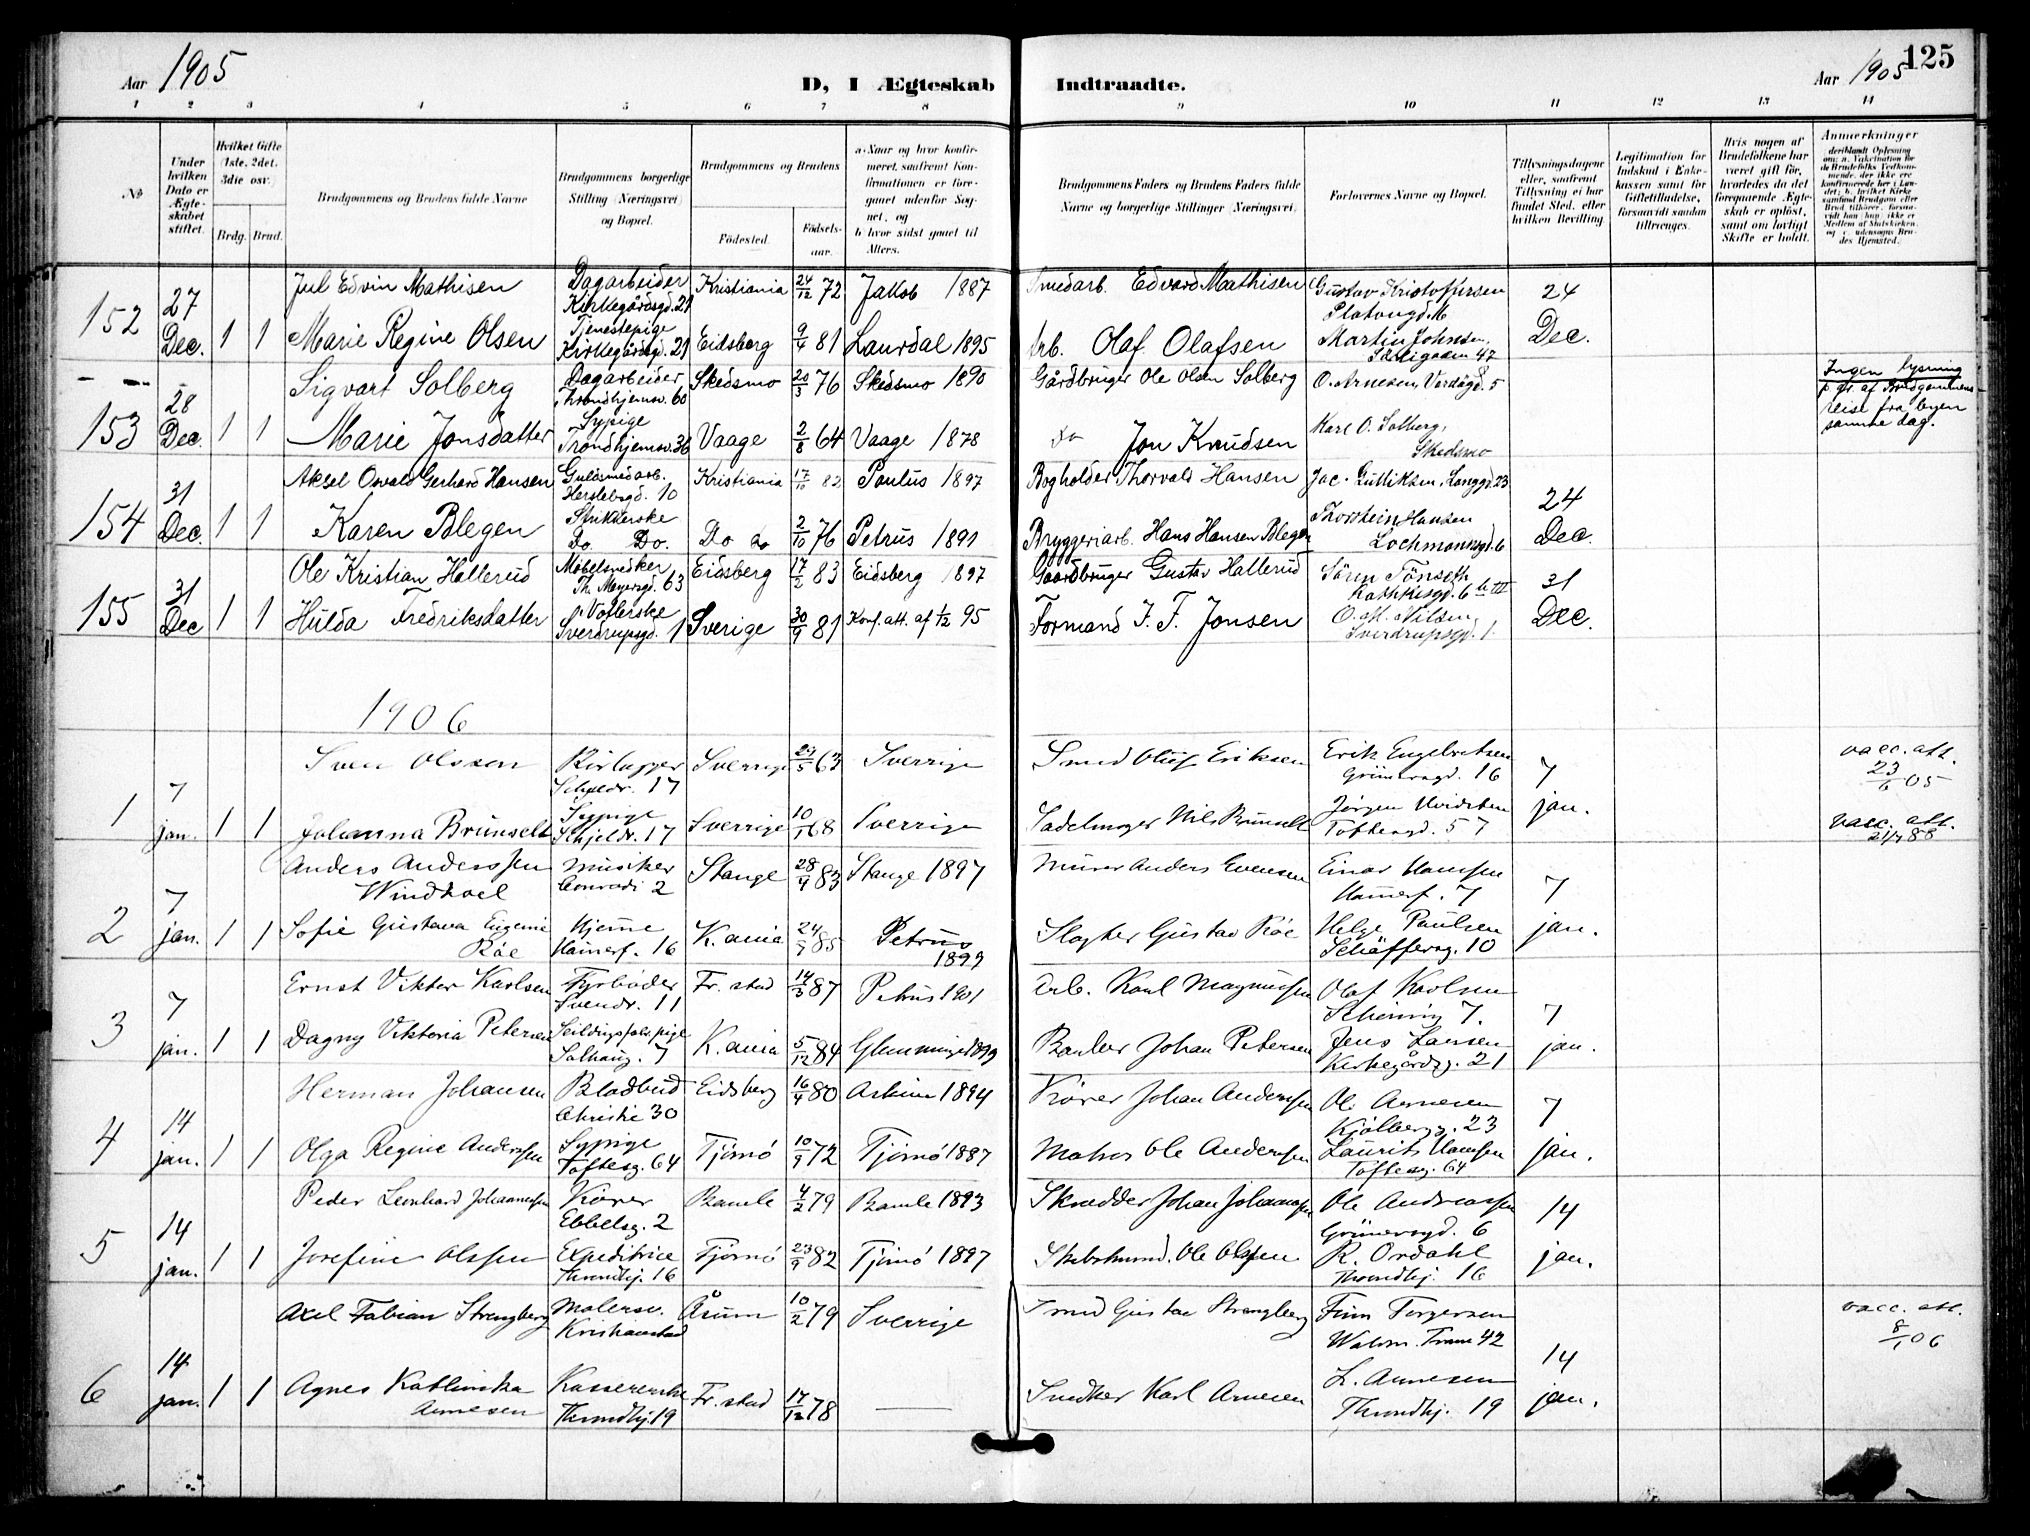 Aar 1905
D, I Ægteskab Indtraadte.
Aar 1905
125
1 2 3 4 5 6 7 8 9 10 11 12 13 14
No
Under hvilken Dato er Ægteskabet stiftet.
Hvilket Gifte (1ste, 2det, 3die osv.)
Brdg. Brud.
Brudgommens og Brudens fulde Navne
Brudgommens borgerlige Stilling (Næringsvei) og Bopæl.
Brudgommens og Brudens
Fødested.
Fødselsaar.
a. Naar og hvor konfirmeret, saafremt Konfirmationen er foregaaet udenfor Sognet, og
b. hvor sidst gaaet til Alters.
Brudgommens Faders og Brudens Faders fulde Navne og borgerlige Stillinger (Næringsvei).
Forlovernes Navne og Bopæl.
Tillysningsdagene eller, saafremt Tillysning ei har fundet Sted, efter hvilken Bevilling.
Legitimation for Indskud i Enkekassen samt for Giftetilladelse, forsaavidt saadan tiltrænges.
Hvis nogen af Brudefolkene har været gift før, hvorledes da det foregaaende Ægteskab er opløst, samt om lovligt Skifte er holdt.
Anmerkninger
152 27 Dec. 1 1
Jul Edvin Mathisen Dagarbeider Kirkegårdsgd. 21 Kristiania 24/12 72 Jakob 1887 Smedarb. Edvard Mathisen Gustav Kristofersen Platougd. 24 Dec.
Marie Regine Olsen Tjenestepige Kirkegårdsgd. 21 Eidsberg 9/4 81 Laurdal 1895 Arb. Olaf Olafsen Martin Johnsen, 47
153 28 Dec. 1 1
Sigvart Solberg Dagarbeider Throndhjemsv. 60 Skedsmo 20/3 76 Skedsmo 1890 Gårdbruger Ole Olsen Solberg O. Arnesen, 5
Ingen lysning p. gr. af Brudgommens reise fra byen samme dag.
Marie Jonsdatter Sypige Trondhjemsv. 36 Vaage 2/8 64 Vaage 1878 Do Jon Knudsen Karl O. Solberg, Skedsmo
154 31 Dec. 1 1
Aksel Osvald Gerhard Hansen Guldsmedarb. Herslebsgd. 10 Kristiania 17/10 82 Paulus 1897 Bogholder Thorvald Hansen Jac. Gulliksen, Langgd 23 24 Dec.
Karen Blegen Strikkerske Do. Do. Do do 2/10 76 Petrus 1891 Bryggeriarb. Hans Hansen Blegen Thorstein Hansen Lochmannsgd. 6
155 31 Dec 1 1
Ole Kristian Hallerud Møbelsnedker Th. Meyersgd. 63 Eidsberg 17/2 83 Eidsberg 1897 Gaardbruger Gustav Hallerud Sören Tönseth 6 b III 31 Dec.
Hulda Fredriksdatter Sverdrupsgd. 1 Sverige 30/9 81 Konf. att. af 1/12 95 Formand J. F. Jonsen O. M. Nilsen, Sverdrupsgd. 1.
1906
1 7 jan. 1 1
Sven Olsson Schjeldr. 17 Sverrige 63 Sverrige Smed Oluf Eriksen Erik Engebretsen Grünersgd. 16 7 jan. vacc. att. 23/6 05
Johanna Brunselt Sypige Schjeldr. 17 Sverrige 10 68 Sverrige Sadelmager Nils Brunselt Jørgen Toftesgd. 57 vacc. att. 88
2 7 jan. 1 1
Anders Anderssen Windhoel Musiker Conradi 2 Stange 28/4 83 Stange 1897 Murer Anders Evensen Einar Hanssen Hamerf. 7 7 jan.
Sofie Gustava Eugenie Röe Hjemme Hamerf. 16 K.ania 24 85 Petrus 1899 Slagter Gustav Röe Helge Paulsen Schäffersg. 10
3 7 jan. 1 1
Ernst Viktor Karlsen Fyrbøder Svendr. 11 Fr.stad 14/3 87 Petrus 1901 Arb. Karl Magnussen Olaf Karlsen 7. 7 jan.
Dagny Viktoria Petersen Solhaug. 7 K.ania 5/12 84 Glemminge 1899 Johan Petersen Jens Larsen Kirkegårdsg. 21
4 14 jan. 1 1
Herman Johansen Bladbud Christie 30 Eidsberg 16/4 80 Askim 1894 Kører Johan Anderssen Ol. Arnesen Kjölbergg. 23 7 jan.
Olga Regine Anderssen Sypige Toftesg. 64 Tjømø 10/9 72 Tjømø 1887 Matros Ole Anderssen Laurits Hanssen Toftesg. 64
5 14 jan. 1 1
Peder Leonhard Johannessen Kører Ebbelsg. 2 Bamle 4/2 79 Bamle 1893 Skrædder Johan Johannessen Ole Andreassen Grünersgd. 6 14 jan.
Josefine Olssen Expeditrice Throndhj. 16 Tjømø 23/9 82 Tjømø 1897 Ole Olssen R. Ordahl Throndhj. 16
6 14 jan. 1 1
Axel Fabian Strengberg Malersv. Kristianstad Åsum 10/2 79 Sverrige Smed Gustav Strengberg Finn Torgersen 42 14 jan. vacc. att. 8/1 06
Agnes Kathinka Arnesen Kassererske Throndhj. 19 Fr.stad 17/12 78 — Snedker Karl Arnesen L. Arnesen Throndhj. 19